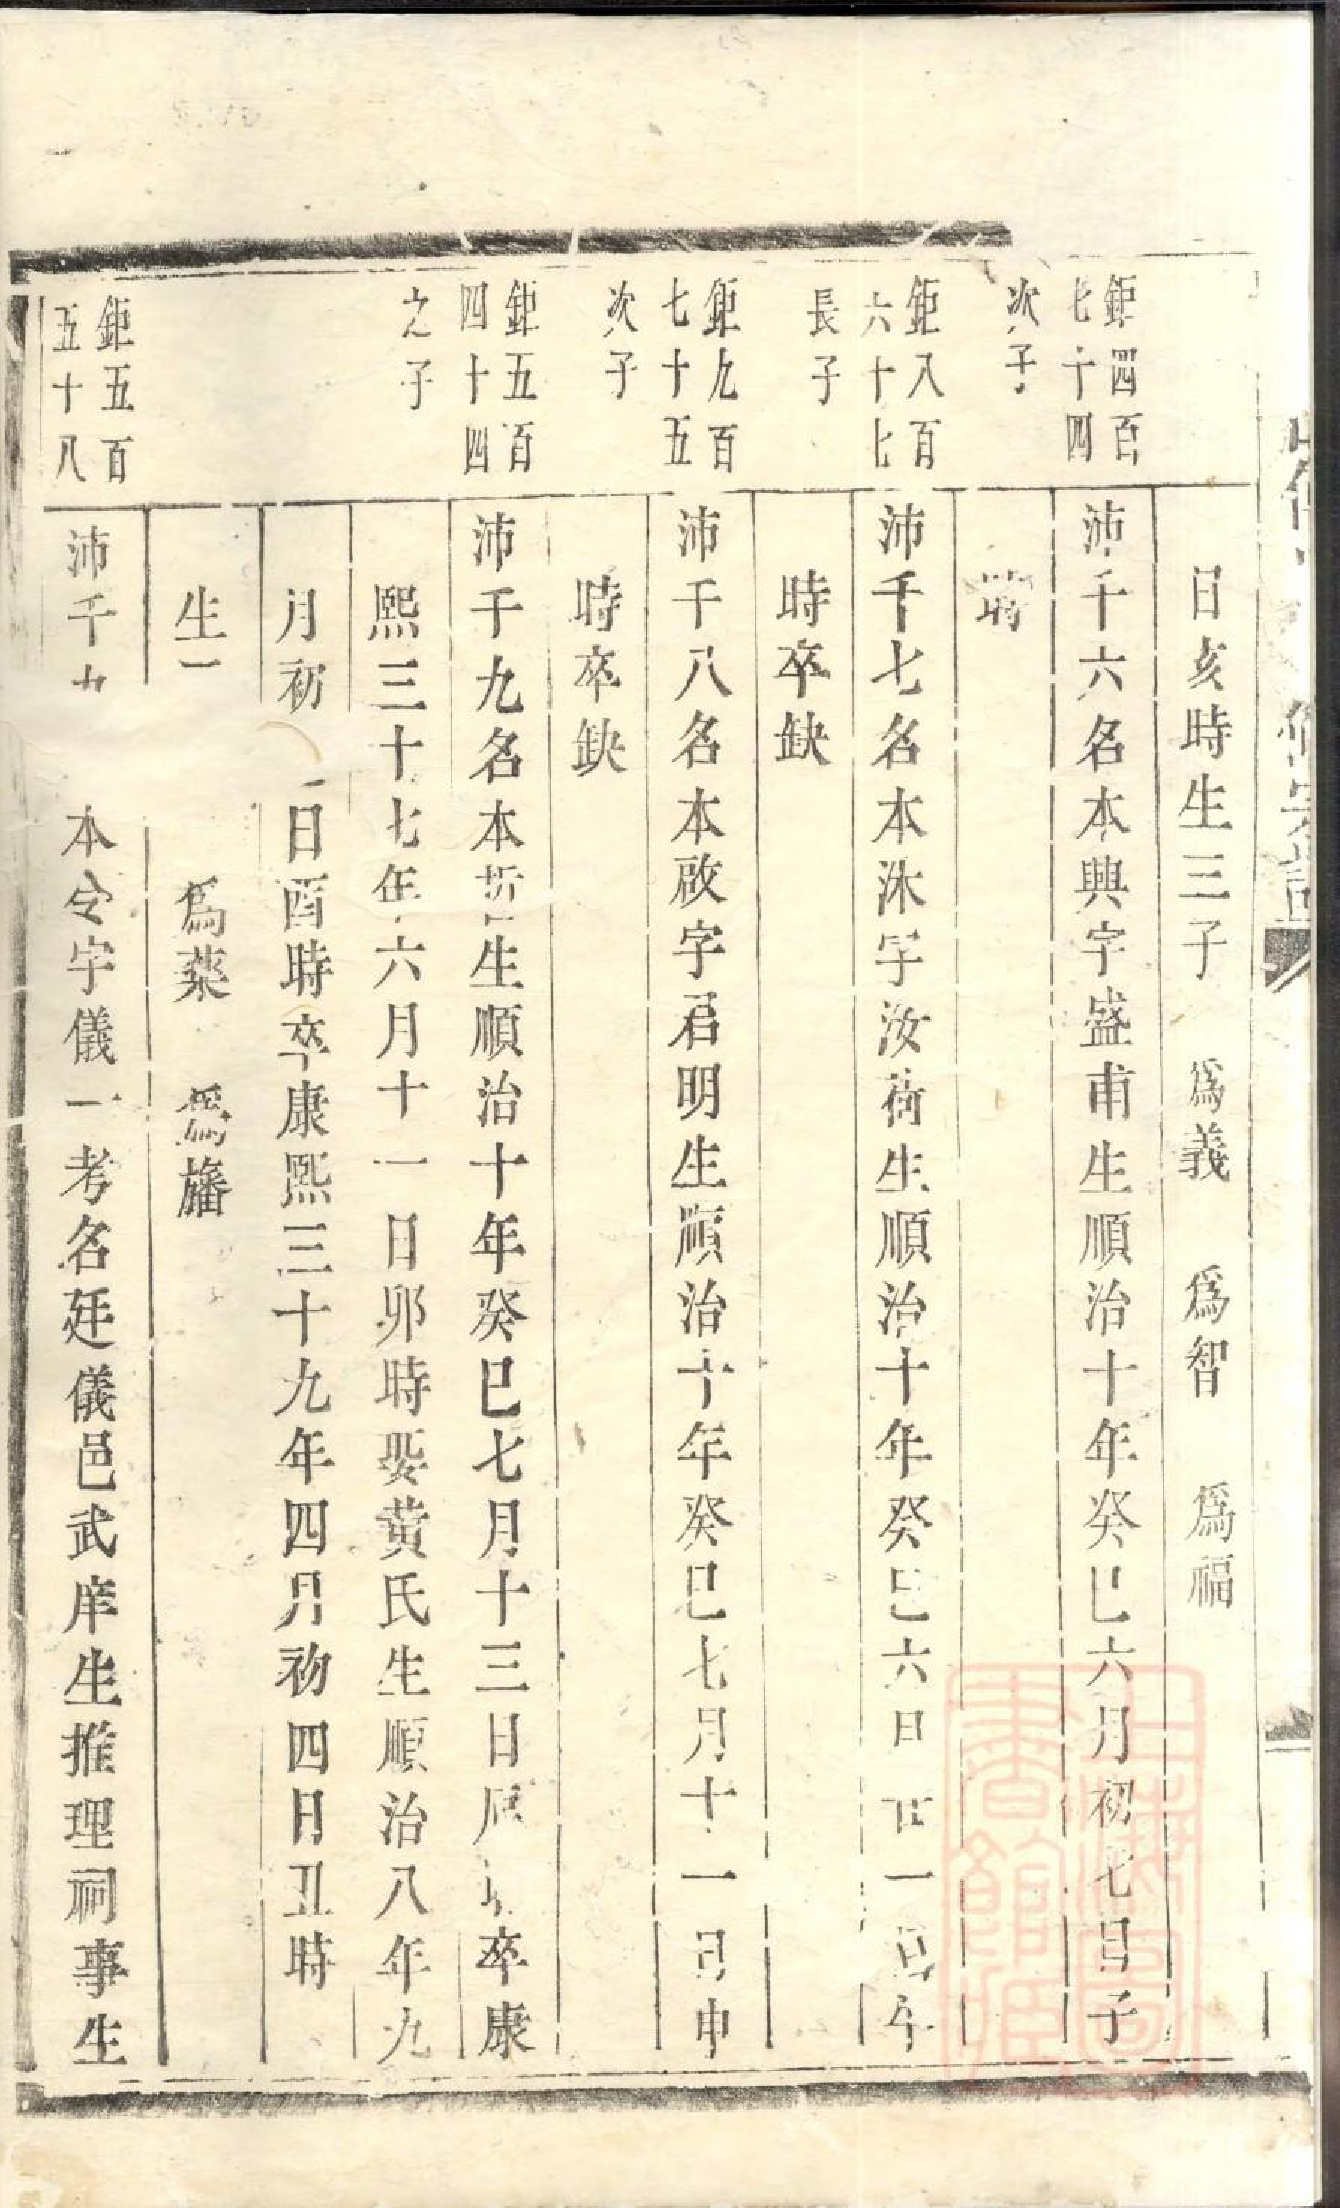 日亥時生三子　為義　為智　為福
鉅四百
七十四
次子
沛千六名本興字盛甫生順治十年癸巳六月初七日子
時
鉅八百
六十七
長子
沛千七名本洙字汝荷生順治十年癸巳六月廿一日午
時卒缺
鉅九百
七十五
次子
沛千八名本啟字君明生順治十年癸巳七月十一日申
時卒缺
鉅五百
四十四
之子
沛千九名本哲生順治十年癸巳七月十三日卒康
熙三十七年六月十一日卯時娶黃氏生順治八年九
月初日酉時卒康熙三十九年四月初四日丑時
生　為蘂　為旛
鉅五百
五十八
沛千九本令字儀一考名廷儀邑武庠生推理祠事生
上海圖書館藏